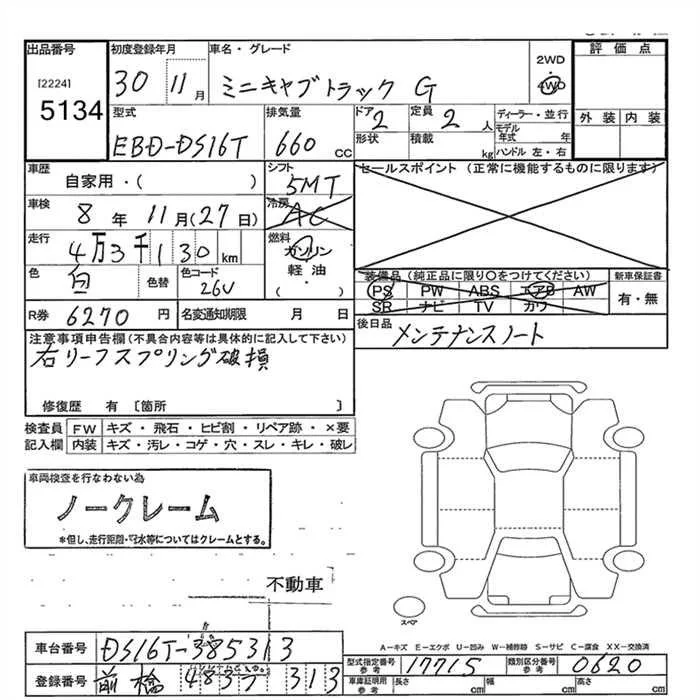 出品番号
[2224]
5134
初度登録年月
30 11月
車名・グレード
ミニキャブトラック G
2WD
4WD
評価点
外装 内装
型式
EBD-DS16T
排気量
660 cc
ドア 2
形状
定員 2 人
積載 kg
ディーラー・並行
モデル年式 年
ハンドル 左・右
車歴
自家用・( )
シフト
5MT
セールスポイント (正常に機能するものに限ります)
車検
8年11月(27日)
冷房
AC
走行
4万3千130km
燃料
ガソリン
軽油
・( )
色
白
色替
色コード
26U
装備品 (純正品に限り○をつけてください)
PS PW ABS エアB AW
SR ナビ TV カワ
新車保証書
有・無
R券 6270円
名変通知期限 月 日
後日品
メンテナンスノート
注意事項申告欄 (不具合内容等は具体的に記入して下さい)
右リーフスプリング破損
修復歴 有 [箇所 ]
検査員 FW キズ・飛石・ヒビ割・リペア跡・×要
記入欄 内装 キズ・汚レ・コゲ・穴・スレ・キレ・破レ
車両検査を行なわない為
ノークレーム
*但し、走行距離・冠水等についてはクレームとする。
不動車
スペア
A-キズ E-エクボ U-凹み W-補修跡 S-サビ C-腐食 XX-交換済
車台番号 DS16T-385313
型式指定番号 参考 17715
類別区分番号 参考 0620
登録番号 前橋 483 313
車庫証明用 参考 長さ cm 幅 cm 高さ cm